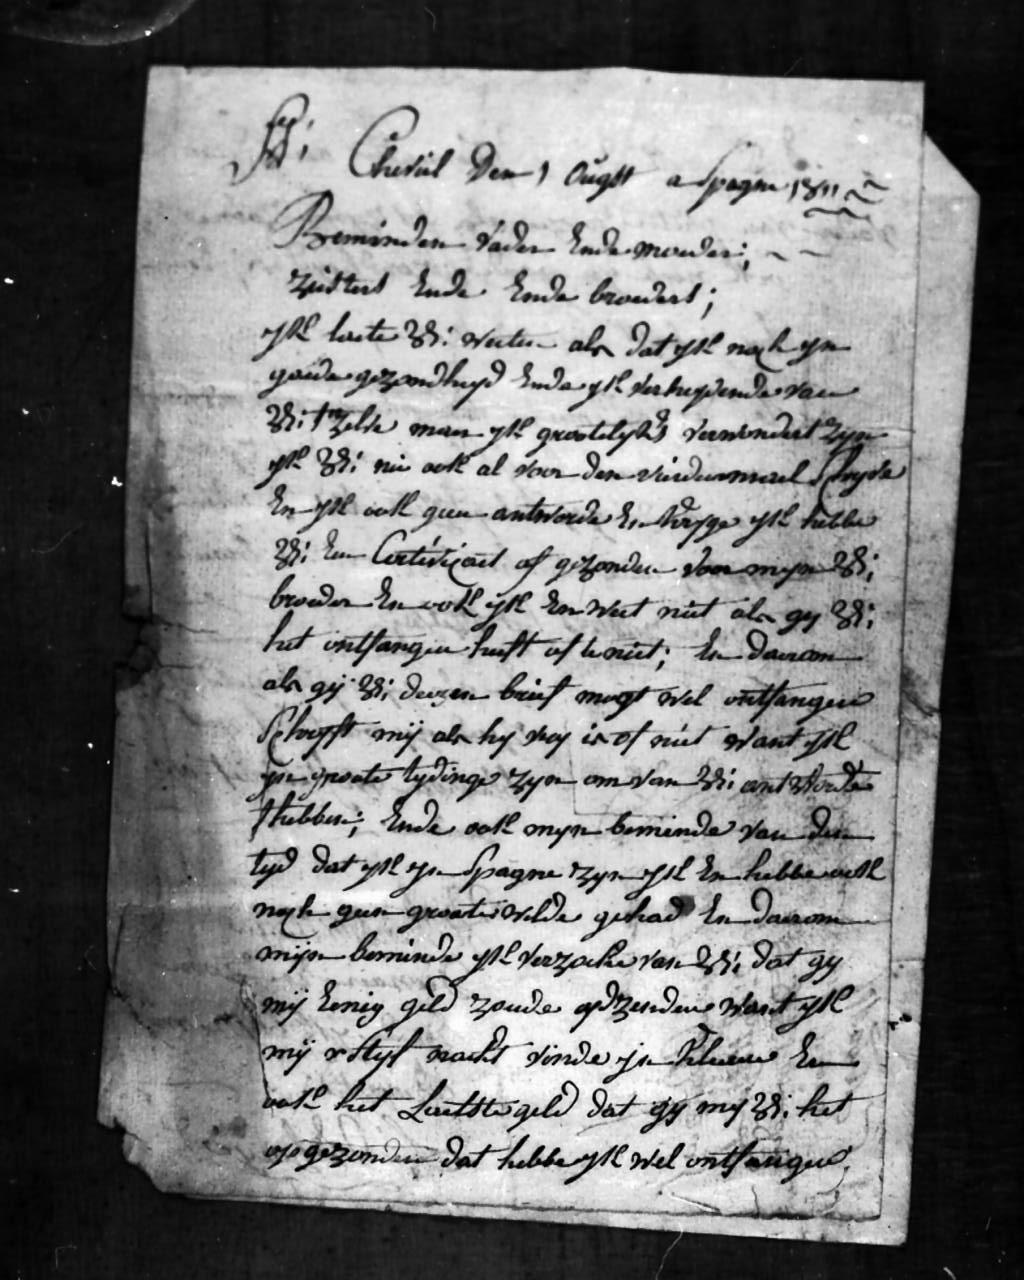 Den 1 Ougst a Spagne 1811
Beminden vader Ende moeder;
zusters Ende Ende broeders;
ijk laete UE: weeten als dat ijk noch ijn
goede gezondheijd Ende ijk verhopende van
UE: tzelve maer ijk grootelijks verwondert zijn
ijk UE: nu ook al voor den vierdemael schrijve
En ijk ook geen antworde En krijge ijk hebbe
UE: Een Certificaet of gezonden voor mijn UE:
broeder En ook ijk En weet niet als gij UE:
het ontfangen heeft of te niet; En daerom
als gij UE: dezen brief mogt wel ontfangen
schrijft mij als hij vrij is of niet want ijk
ijn groote tijdinge zijn om van UE: antworde
thebben; Ende ook mijn beminde van den
tijd dat ijk ijn Spagne zijn ijk En hebbe ook
noch geen groote gehad En daerom
mijn beminde ijk verzoeke van UE: dat gij
mij Eenig geld zoude opzenden want ijk
mij stijf nackt vinde ijn En
ook het Laetste geld dat gij mij UE: het
opgezonden dat hebbe ijk wel ontfangen